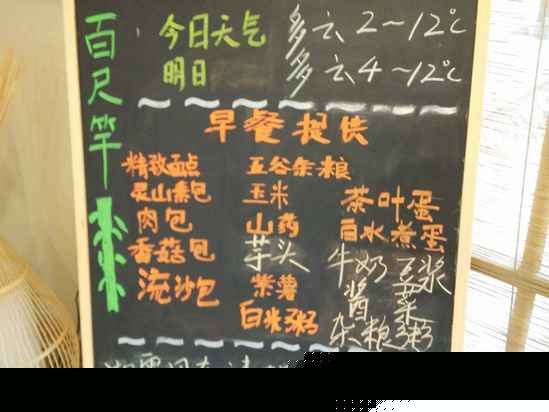 百尺竿
今日天气 多云 2~12℃
明日 多云 4~12℃
早餐提供
精致面点
灵山素包
肉包
香菇包
流沙包
五谷杂粮
玉米
山药
芋头
紫薯
白米粥
茶叶蛋
白水煮蛋
牛奶 豆浆
酱菜
杂粮粥